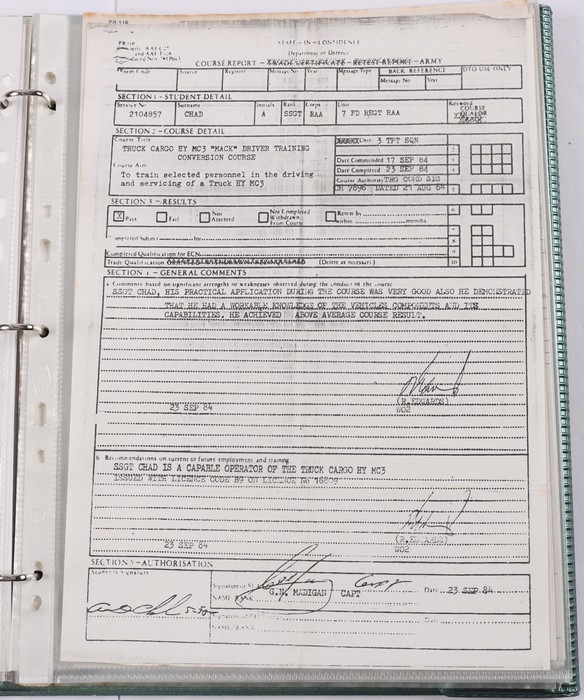 PR 118
STAFF-IN-CONFIDENCE
Department of Defence
COURSE REPORT - TRADE CERTIFICATE - RETEST REPORT - ARMY
Form Code Source Register Message No Year Message Type BACK REFERENCE DTO USE ONLY
Message No Year
SECTION 1 - STUDENT DETAIL
Service No Surname Initials Rank Corps Unit Keyword
2104857 CHAD A SSGT RAA 7 FD REGT RAA
COURSE
SECTION 2 - COURSE DETAIL
Course Title
TRUCK CARGO HY MC3 "MACK" DRIVER TRAINING
CONVERSION COURSE
Unit 3 TPT SQN
Date Commenced 17 SEP 84
Date Completed 23 SEP 84
Course Aim
To train selected personnel in the driving
and servicing of a Truck HY MC3
Course Authority
DATED 21 AUG 84
SECTION 3 - RESULTS
X Pass Fail Not Assessed Not Completed Withdrawn From Course Retest by
within months
for
Completed Qualification for ECN
Trade Qualification (Delete as necessary)
SECTION 4 - GENERAL COMMENTS
a Comments based on significant strengths or weaknesses observed during the conduct of the course
SSGT CHAD, HIS PRACTICAL APPLICATION DURING THE COURSE WAS VERY GOOD ALSO HE DEMONSTRATED
THAT HE HAD A WORKABLE KNOWLEDGE OF THE VEHICLES COMPONENTS AND ITS
CAPABILITIES. HE ACHIEVED ABOVE AVERAGE COURSE RESULT.
23 SEP 84
(R.EDWARDS)
WO2
b Recommendations on current or future employment and training
SSGT CHAD IS A CAPABLE OPERATOR OF THE TRUCK CARGO HY MC3
ISSUED WITH LICENCE CODE B9 ON LICENCE No
23 SEP 84
(R.EDWARDS)
WO2
SECTION 5 - AUTHORISATION
Student's Signature
G.N. MADIGAN CAPT
Date 23 SEP 84
NAME/RANK
Date
NAME/RANK